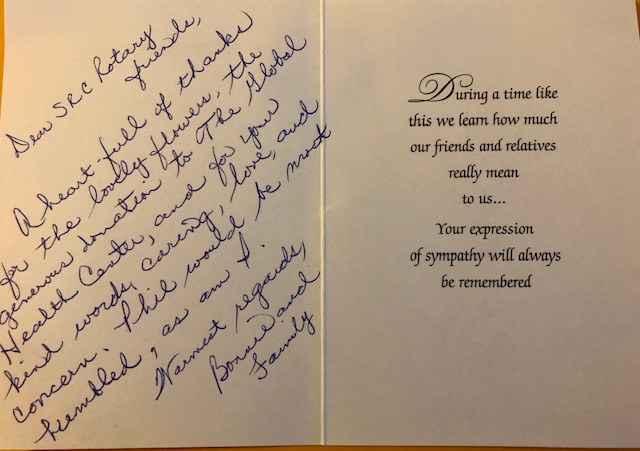 Dear SRC Rotary
friends,
A heart full of thanks
for the lovely flowers, the
generous donation to The Global
Health Center, and for your
kind words, caring, love, and
concern. Phil would be most
humbled, as am I.
Warmest regards,
Bonnie and
Family
During a time like
this we learn how much
our friends and relatives
really mean
to us...
Your expression
of sympathy will always
be remembered